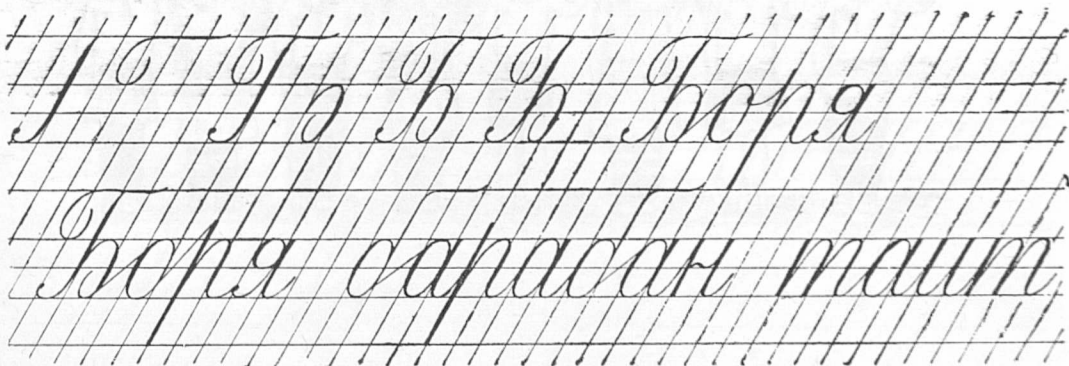 Б Б Боря
Боря барабан таит